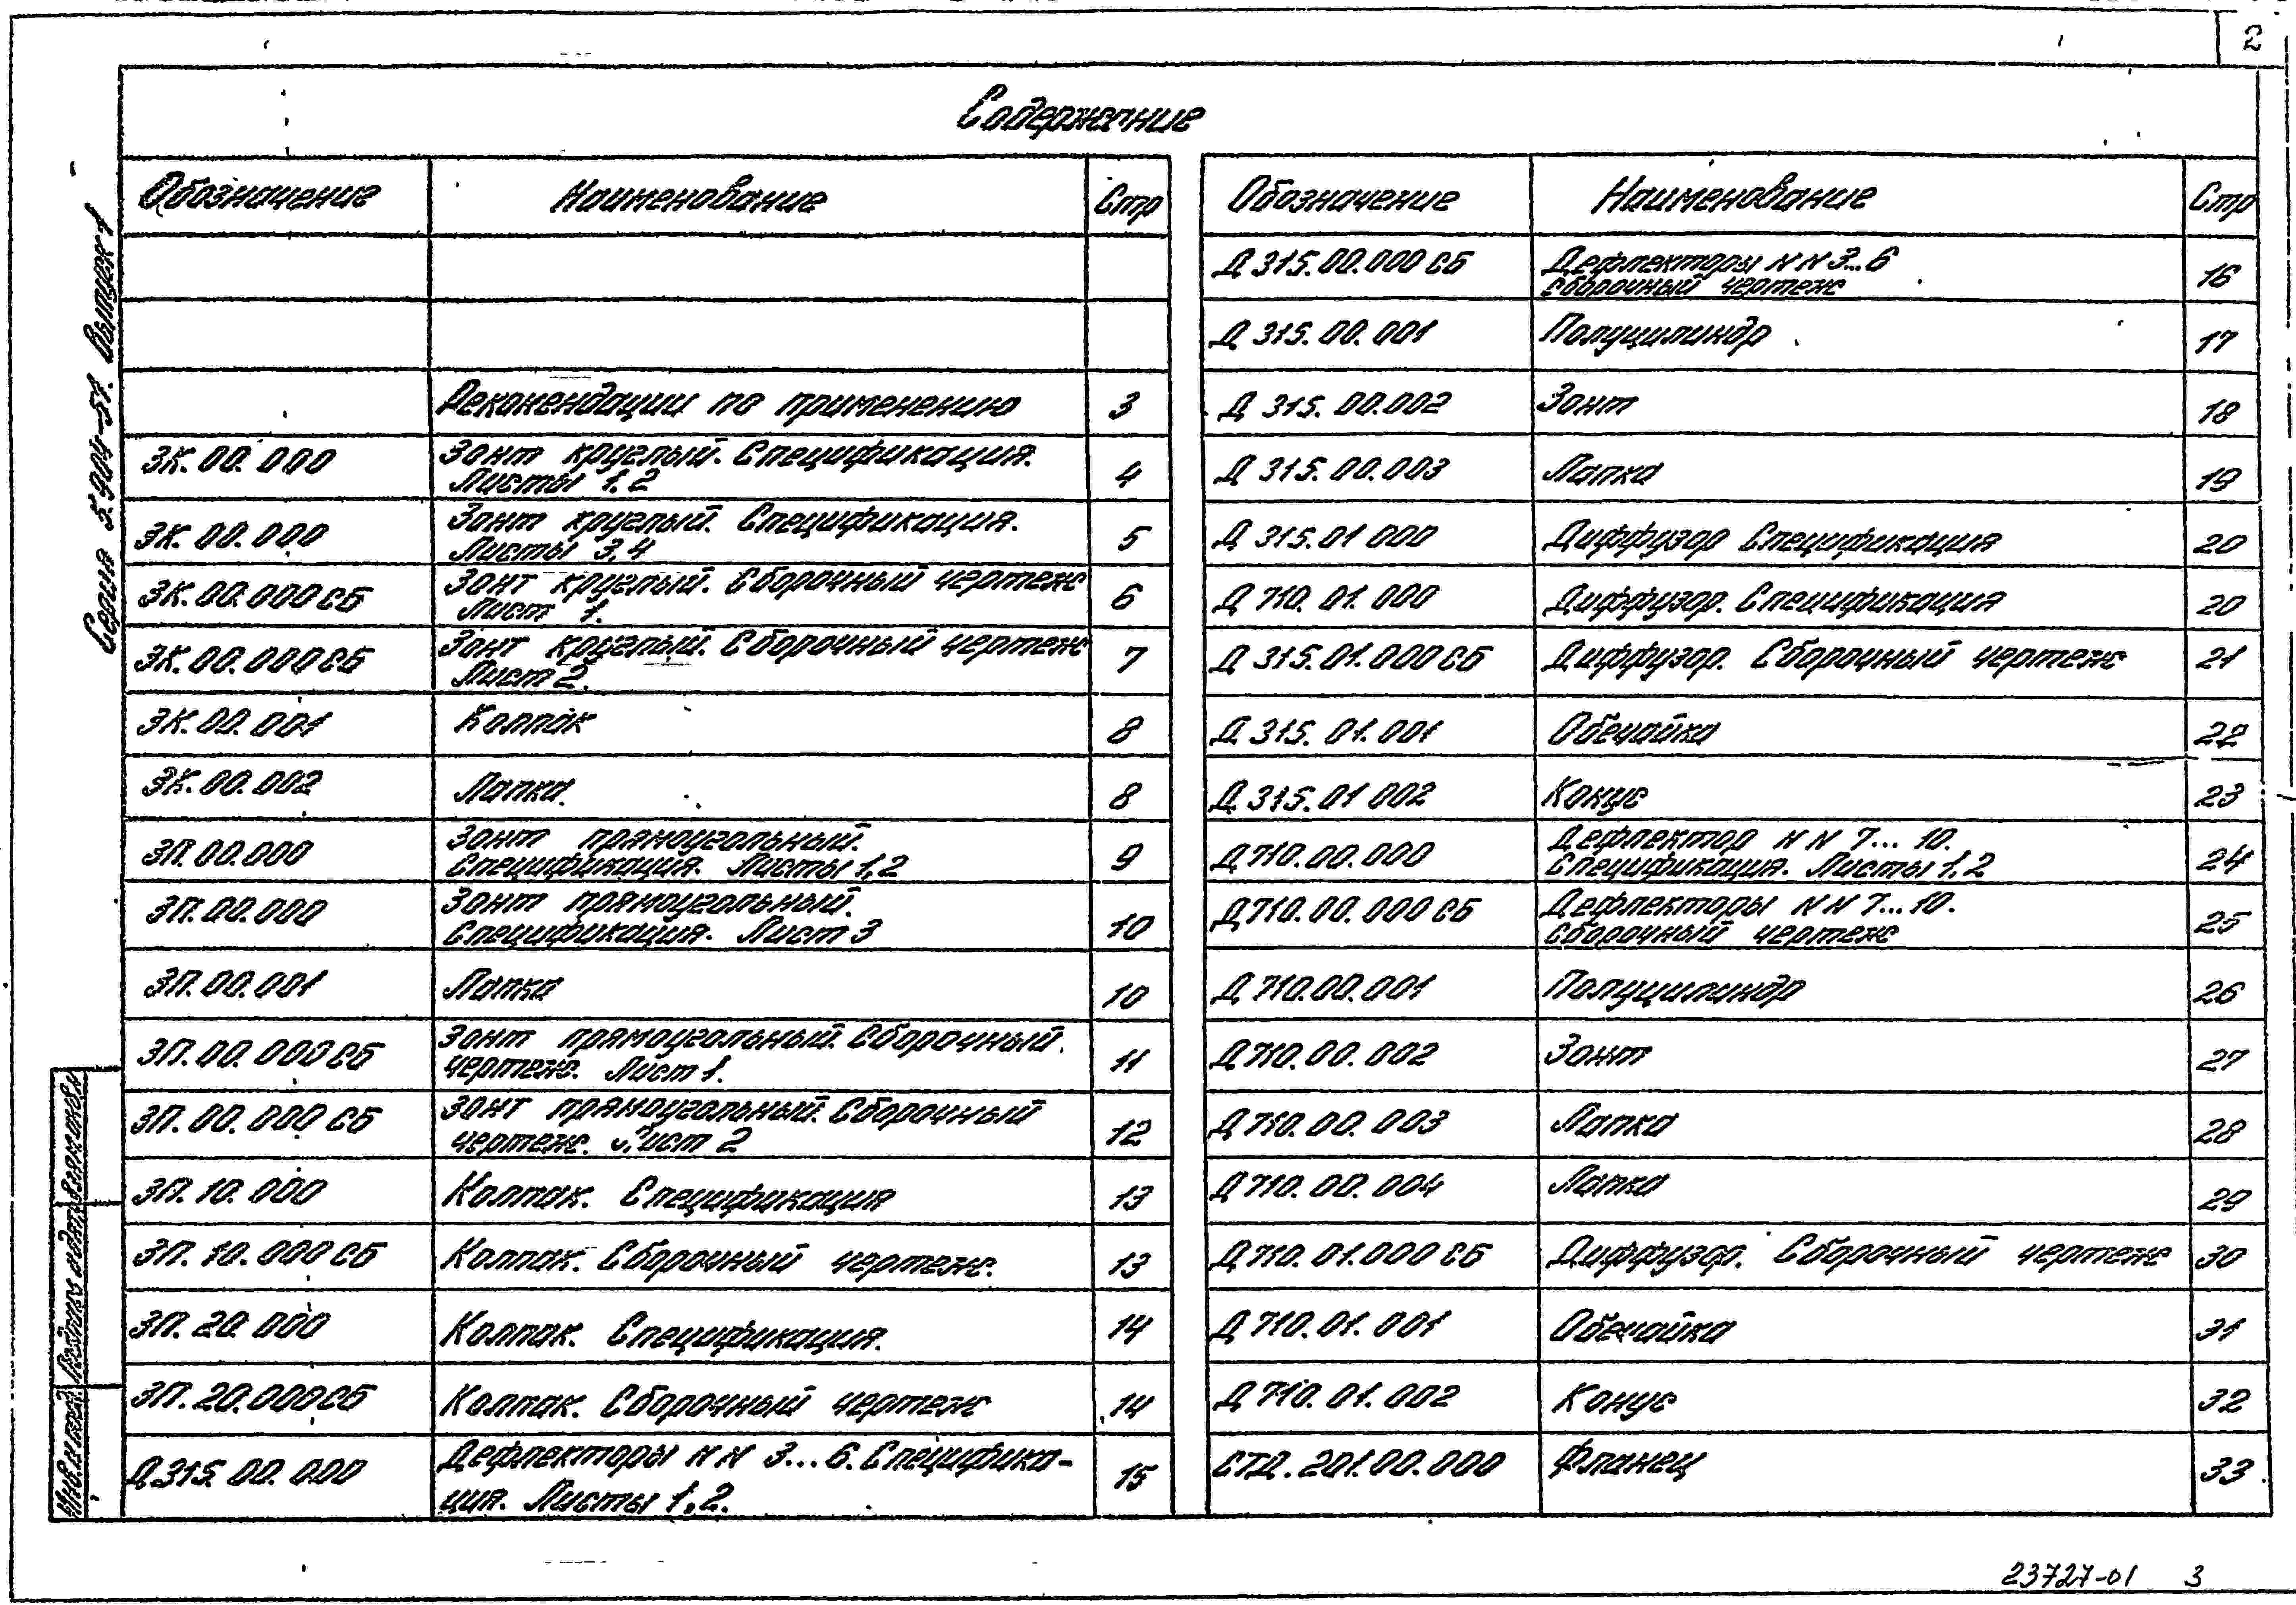 2
Содержание
Серия 5.904-51. Выпуск 1
Обозначение Наименование Стр
Рекомендации по применению 3
ЗК.00.000 Зонт круглый. Спецификация.
Листы 1.2 4
ЗК.00.000 Зонт круглый. Спецификация.
Листы 3,4 5
ЗК.00.000СБ Зонт круглый. Сборочный чертеж
Лист 1. 6
ЗК.00.000СБ Зонт круглый. Сборочный чертеж
Лист 2. 7
ЗК.00.001 Колпак 8
ЗК.00.002 Лапка. 8
ЗП.00.000 Зонт прямоугольный.
Спецификация. Листы 1,2 9
ЗП.00.000 Зонт прямоугольный.
Спецификация. Лист 3 10
ЗП.00.001 Лапка 10
ЗП.00.000СБ Зонт прямоугольный. Сборочный
чертеж. Лист 1. 11
ЗП.00.000СБ Зонт прямоугольный. Сборочный
чертеж. Лист 2 12
ЗП.10.000 Колпак. Спецификация 13
ЗП.10.000СБ Колпак. Сборочный чертеж. 13
ЗП.20.000 Колпак. Спецификация. 14
ЗП.20.000СБ Колпак. Сборочный чертеж 14
Д315.00.000 Дефлекторы NN 3...6. Специфика-
ция. Листы 1,2. 15
Обозначение Наименование Стр
Д 315.00.000СБ Дефлекторы NN 3...6
Сборочный чертеж 16
Д 315.00.001 Полуцилиндр 17
Д 315.00.002 Зонт 18
Д 315.00.003 Лапка 19
Д 315.01 000 Диффузор Спецификация 20
Д 710.01.000 Диффузор. Спецификация 20
Д 315.01.000СБ Диффузор. Сборочный чертеж 21
Д 315.01.001 Обечайка 22
Д 315.01 002 Конус 23
Д710.00.000 Дефлектор NN 7...10.
Спецификация. Листы 1,2 24
Д710.00.000СБ Дефлекторы NN 7...10.
Сборочный чертеж 25
Д 710.00.001 Полуцилиндр 26
Д 710.00.002 Зонт 27
Д 710.00.003 Лапка 28
Д 710.00.004 Лапка 29
Д 710.01.000СБ Диффузор. Сборочный чертеж 30
Д 710.01.001 Обечайка 31
Д 710.01.002 Конус 32
СТД.201.00.000 Фланец 33
Инв.N подл. Подпись и дата Взам.инв.N
23727-01 3